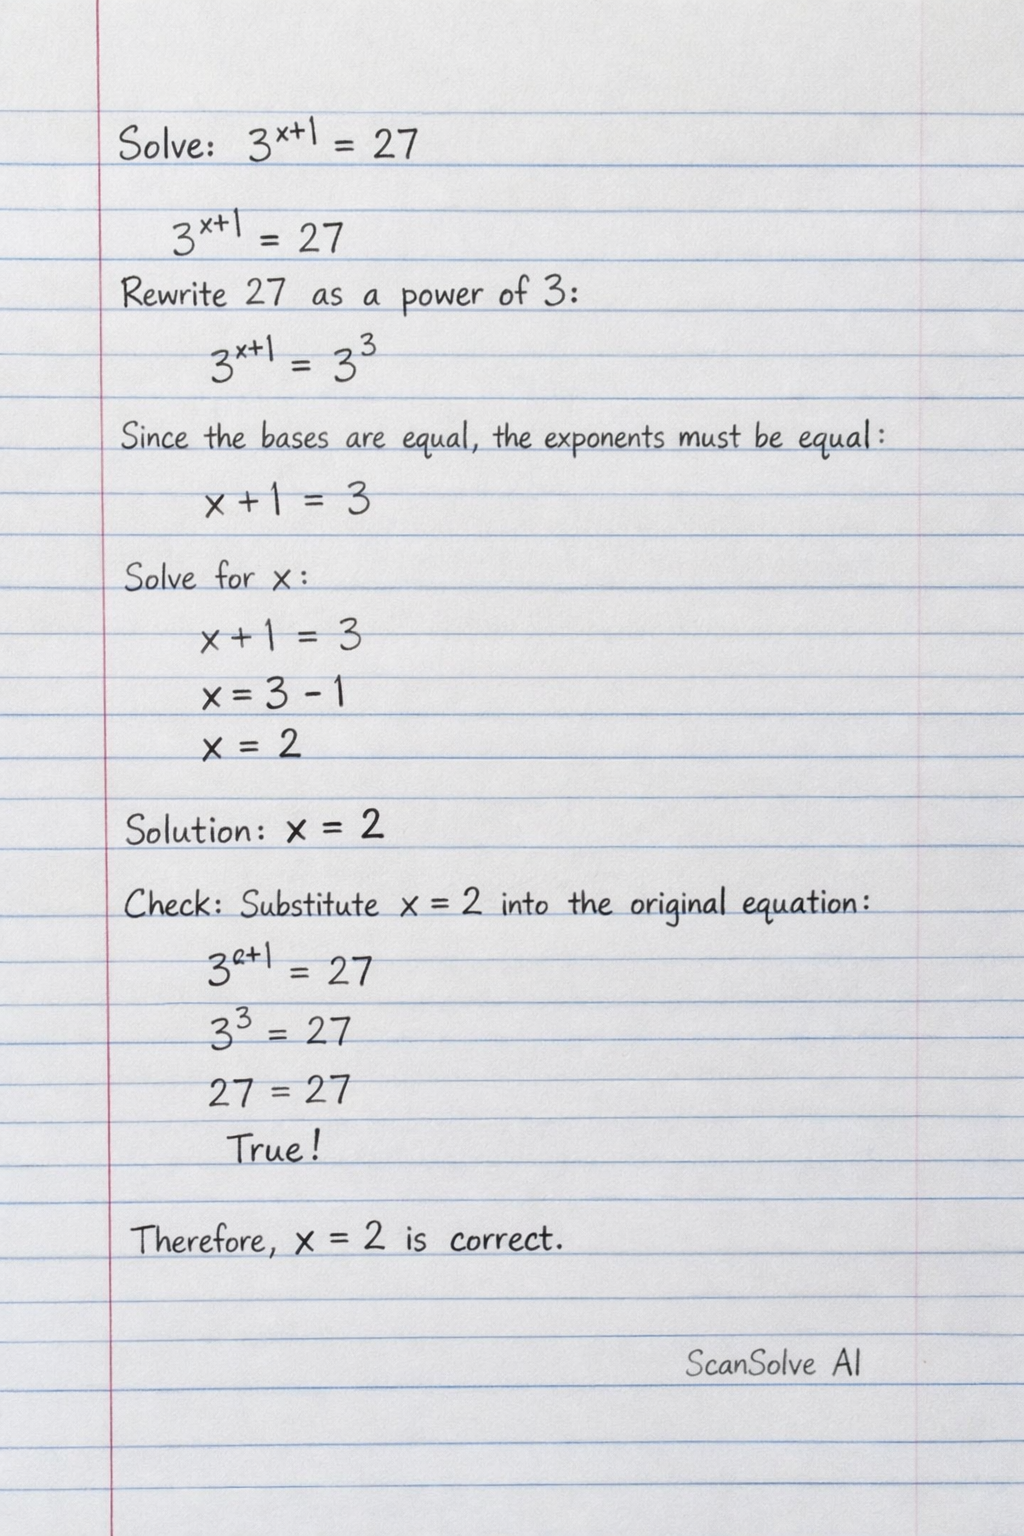 Solve: 3^{x+1} = 27
3^{x+1} = 27
Rewrite 27 as a power of 3:
3^{x+1} = 3^3
Since the bases are equal, the exponents must be equal:
x + 1 = 3
Solve for x:
x + 1 = 3
x = 3 - 1
x = 2
Solution: x = 2
Check: Substitute x = 2 into the original equation:
3^{2+1} = 27
3^3 = 27
27 = 27
True!
Therefore, x = 2 is correct.
ScanSolve AI